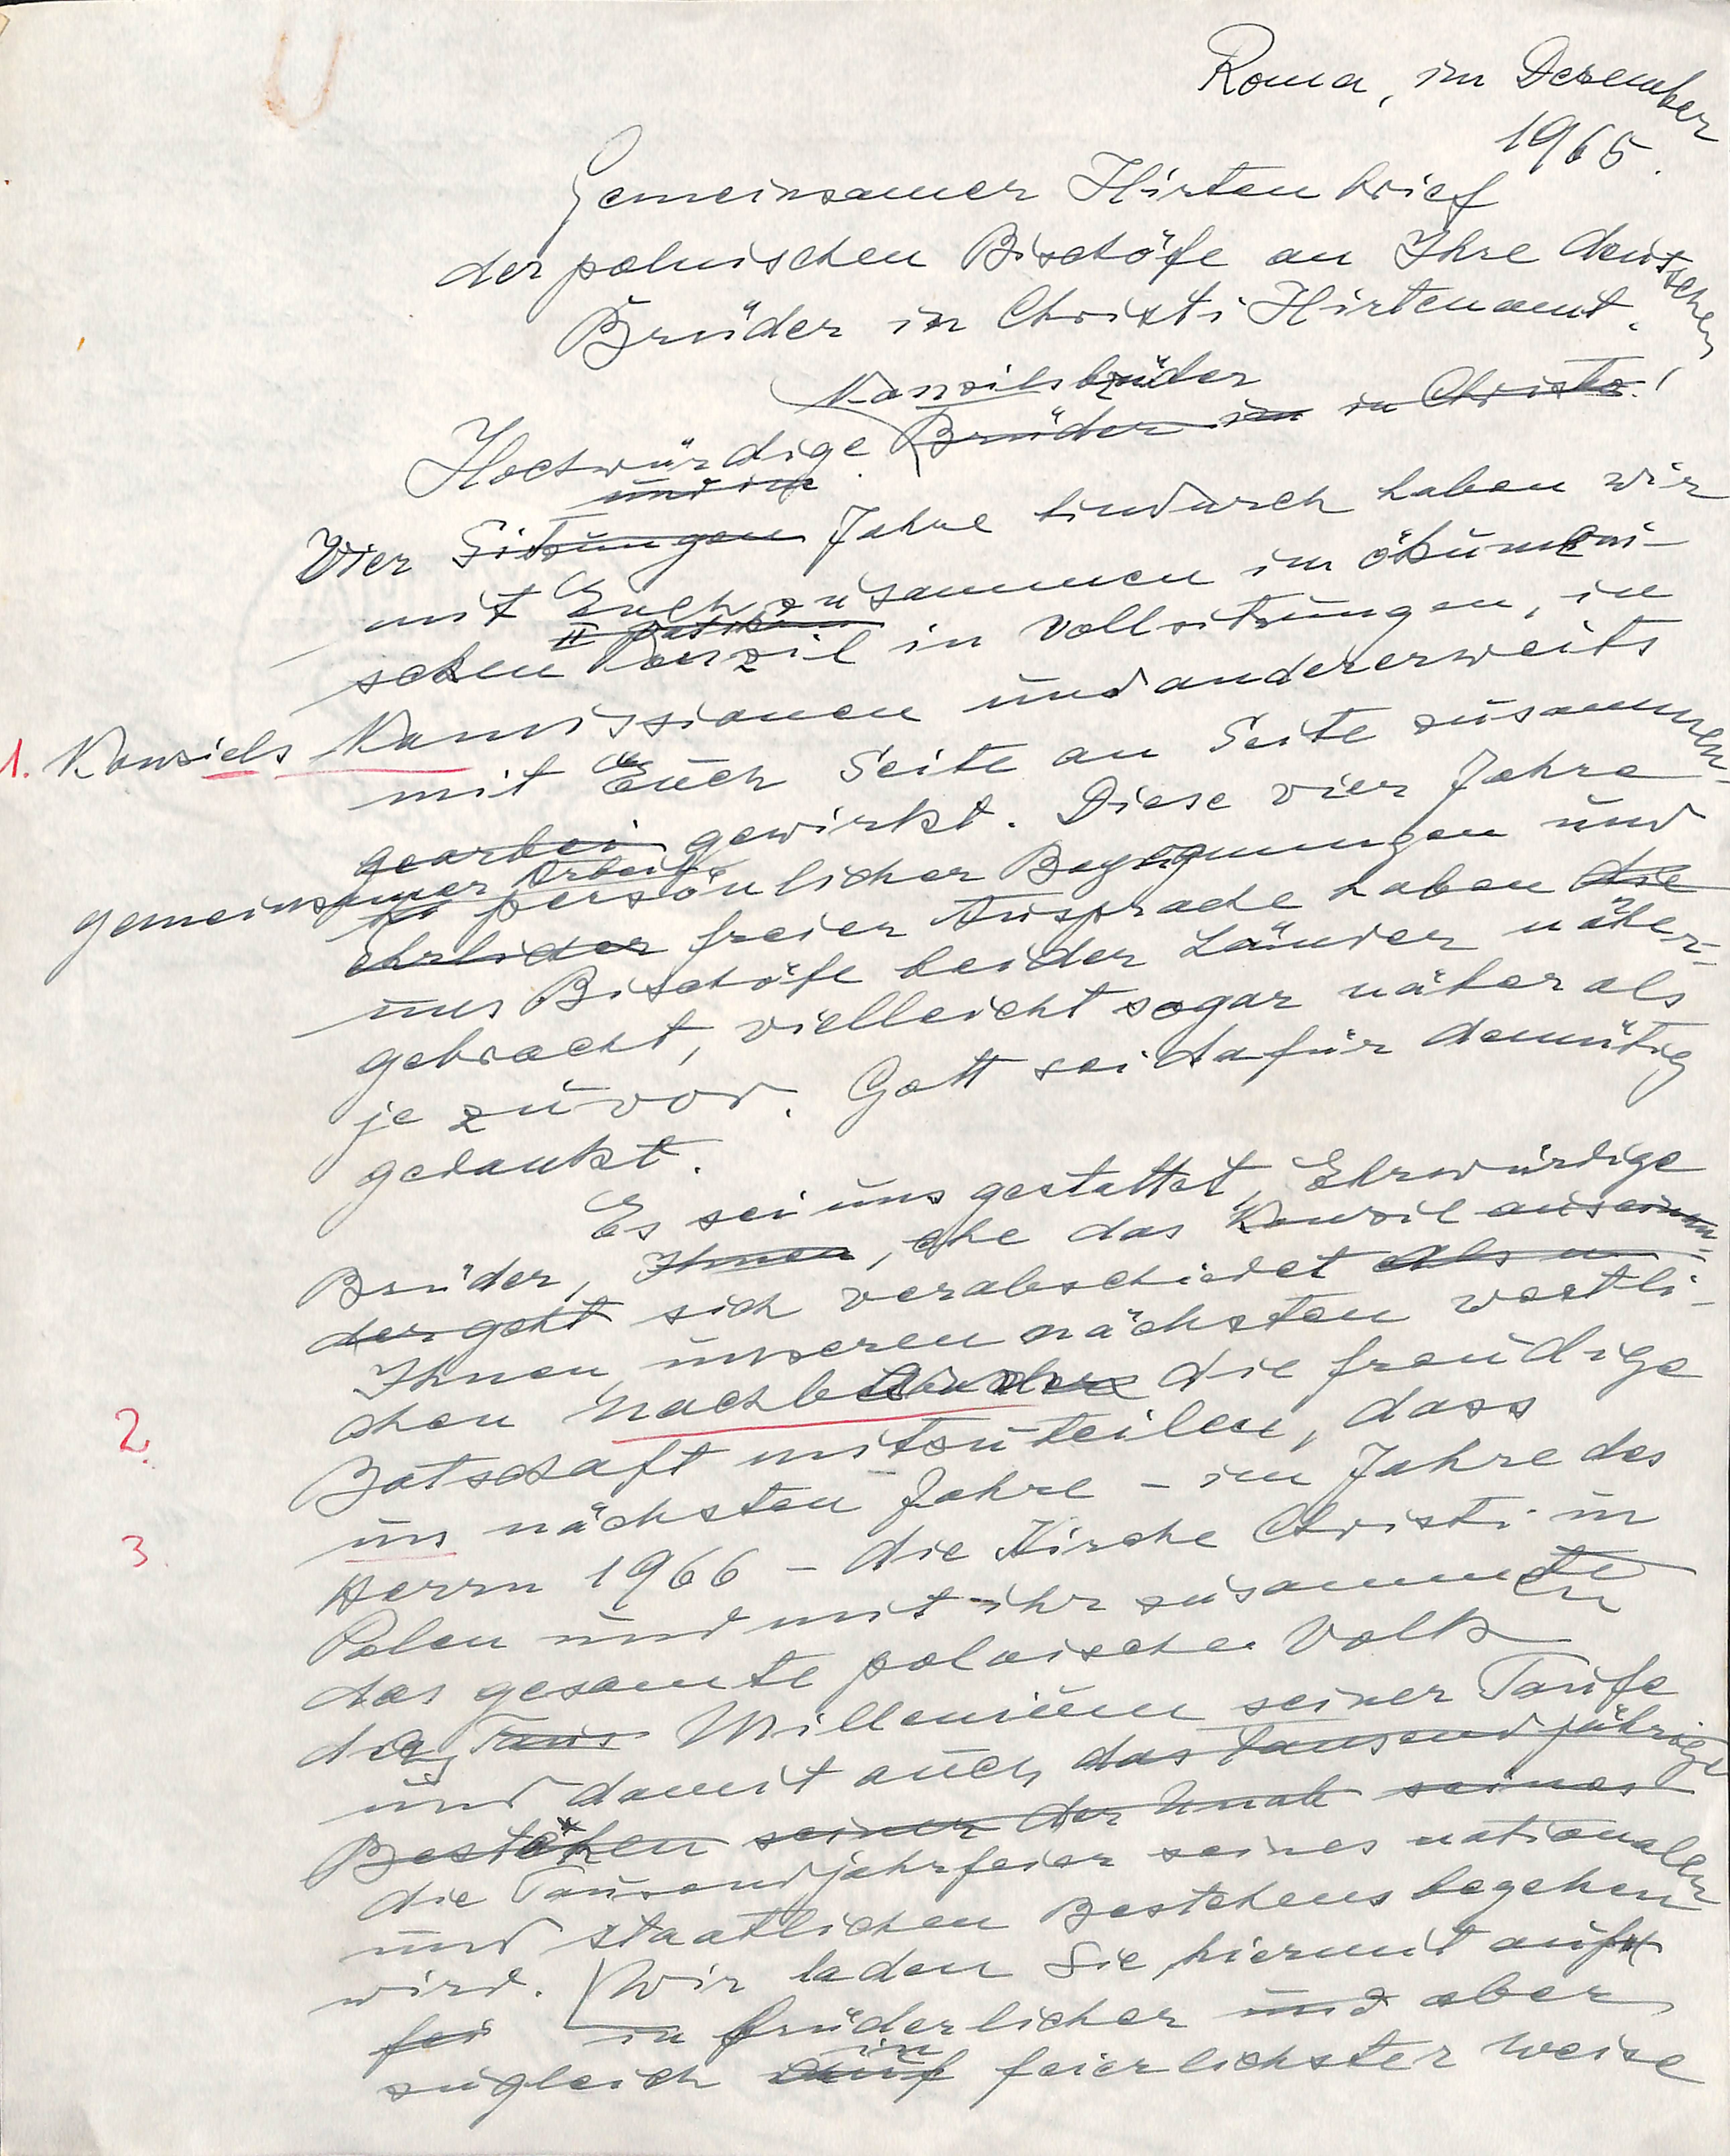 Roma, im Dezember
1965.
Gemeinsamer Hirtenbrief
der polnischen Bischöfe an Ihre deutschen
Brüder in Christi Hirtenamt.
Konzilsbrüder
Hochwürdige Brüder im in Christo!
und im
Vier Sitzungen Jahre hindurch haben wir
mit Euch zusammen im ökumeni-
II Vatikan
schen Konzil in Vollsitzungen, in
1. Konziels Komissionen und andererweits
mit Euch Seite an Seite zusammen-
gearbei gewirkt. Diese vier Jahre
gemeinsamer Arbeit,
persönlicher Begegnungen und
ehrlicher freier Aussprache haben die
uns Bischöfe beider Länder näher-
gebracht, vielleicht sogar näher als
je zuvor. Gott sei dafür demütig
gedankt.
Es sei uns gestattet, Ehrwürdige
Brüder, Ihnen, ehe das Konzil auseinan-
der geht sich verabschiedet als un
Ihnen unseren nächsten westli-
chen Nachbarn die freudige
2. Botschaft mitzuteilen, dass
im nächsten Jahre - im Jahre des
3. Herrn 1966 - die Kirche Christi in
Polen und mit ihr zusammen
das gesamte polnische Volk
das Taus Millenium seiner Taufe
und damit auch das Tausendjährige
Bestehen seiner der seines
die Tausendjahrfeier seines nationalen
und staatlichen Bestehens begehen
wird. Wir laden Sie hiermit auf
fei in brüderlicher und aber
in
zugleich auf feierlichster Weise